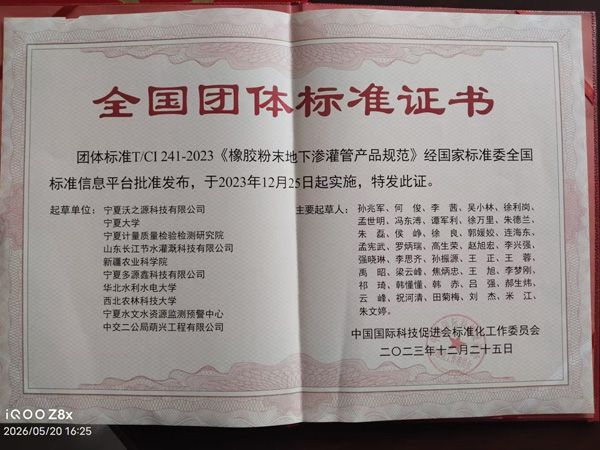 全国团体标准证书
团体标准T/CI 241-2023《橡胶粉末地下渗灌管产品规范》经国家标准委全国
标准信息平台批准发布，于2023年12月25日起实施，特发此证。
起草单位：宁夏沃之源科技有限公司
宁夏大学
宁夏计量质量检验检测研究院
山东长江节水灌溉科技有限公司
新疆农业科学院
宁夏多源鑫科技有限公司
华北水利水电大学
西北农林科技大学
宁夏水文水资源监测预警中心
中交二公局萌兴工程有限公司
主要起草人：孙兆军、何 俊、李 茜、吴小林、徐利岗、
孟世明、冯东溥、谭军利、徐万里、朱德兰、
朱 磊、侯 峥、徐 良、郭媛姣、连海东、
孟宪武、罗炳瑞、高生荣、赵旭宏、李兴强、
强晓琳、李思齐、孙振源、王 正、王 蓉、
禹 昭、梁云峰、焦炳忠、王 旭、李梦刚、
祁 琦、韩懂懂、韩 赤、吕 强、郝生炜、
云 峰、祝河清、田菊梅、刘 杰、米 江、
朱文婷。
中国国际科技促进会标准化工作委员会
二〇二三年十二月二十五日
iQOO Z8x
2026/05/20 16:25